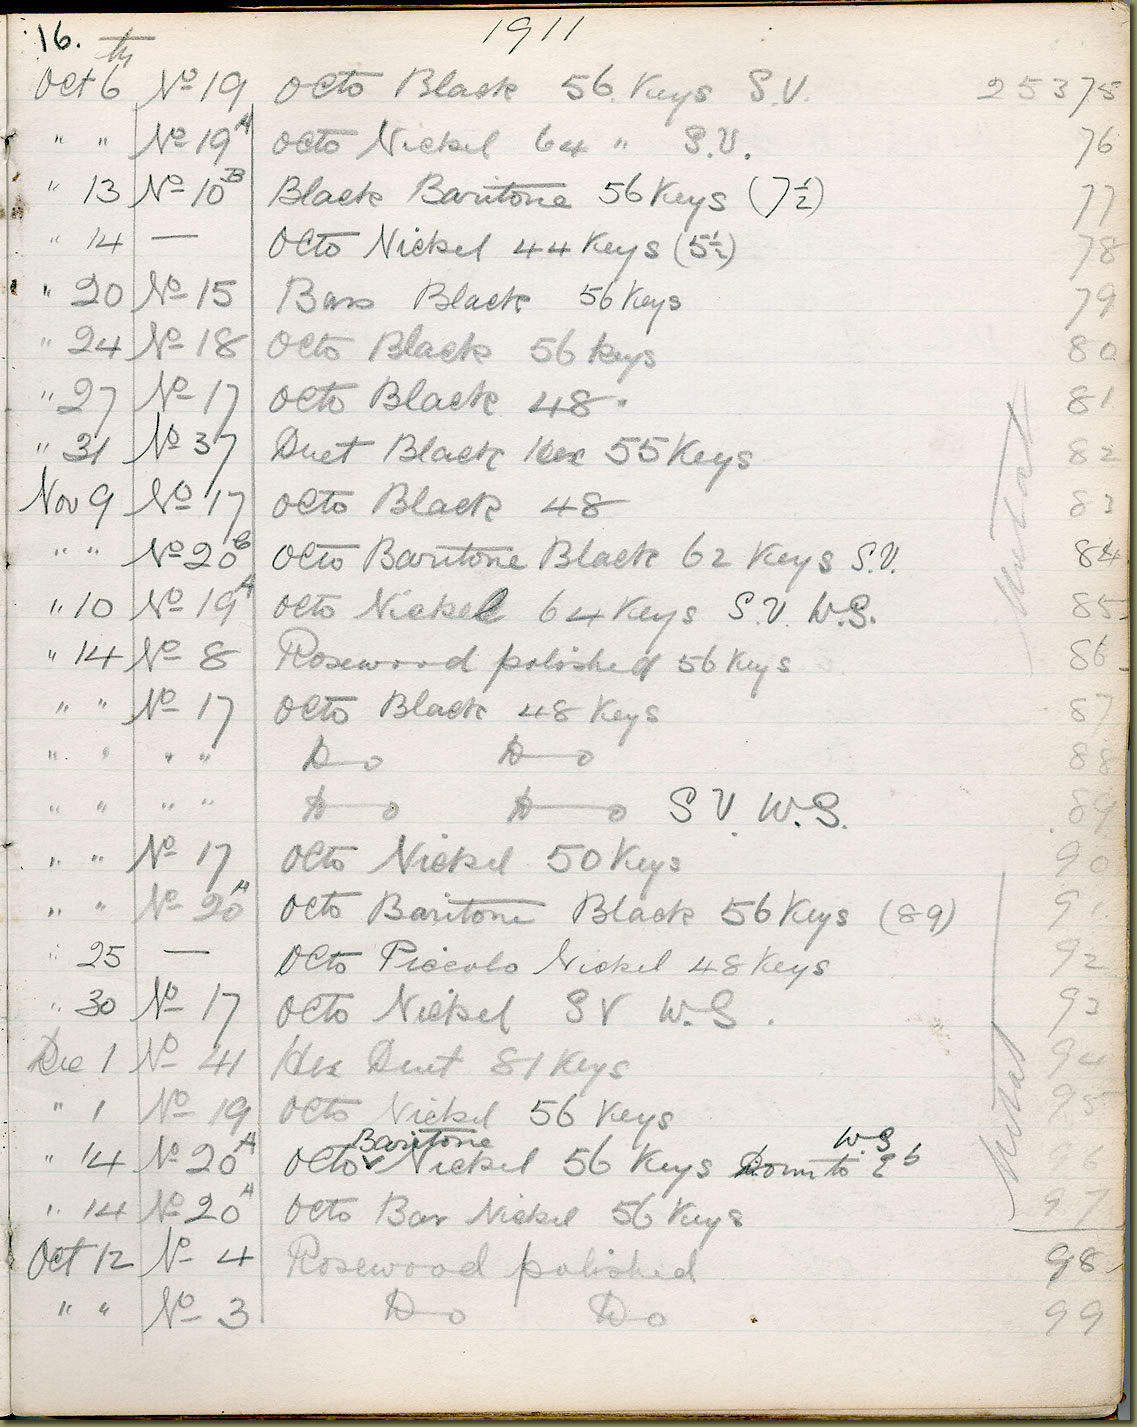 16. 1911
Oct 6th No 19 Octo Black 56 Keys S.V. 25375
" " No 19A Octo Nickel 64 " S.V. 76
" 13 No 10B Black Baritone 56 Keys (7½) 77
" 14 — Octo Nickel 44 Keys (5½) 78
" 20 No 15 Bass Black 56 Keys 79
" 24 No 18 Octo Black 56 Keys 80
" 27 No 17 Octo Black 48 " 81
" 31 No 37 Duet Black Hex 55 Keys 82
Nov 9 No 17 Octo Black 48 83
" " No 20C Octo Baritone Black 62 Keys S.V. 84
" 10 No 19A Octo Nickel 64 Keys S.V. W.S. 85
" 14 No 8 Rosewood polished 56 Keys 86
" " No 17 Octo Black 48 Keys 87
" " " " Do Do 88
" " " " Do Do S.V. W.S. 89
" " No 17 Octo Nickel 50 Keys 90
" " No 20A Octo Baritone Black 56 Keys (89) 91
" 25 — Octo Piccolo Nickel 48 Keys 92
" 30 No 17 Octo Nickel S V W.S. 93
Dec 1 No 41 Hex Duet 81 Keys 94
" 1 No 19 Octo Nickel 56 Keys 95
" 14 No 20A Octo Baritone Nickel 56 Keys Down to Eb W.S 96
" 14 No 20A Octo Bar Nickel 56 Keys 97
Oct 12 No 4 Rosewood polished 98
" " No 3 Do Do 99